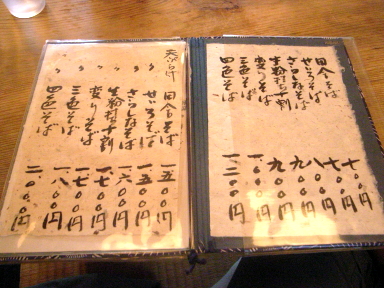 田舎そば 七〇〇円
せいろそば 七〇〇円
さらしなそば 八〇〇円
生粉打ち十割 九〇〇円
変りそば 九〇〇円
三色そば 一、〇〇〇円
四色そば 一、二〇〇円
天ぷら付 田舎そば 一、五〇〇円
〃 せいろそば 一、五〇〇円
〃 さらしなそば 一、六〇〇円
〃 生粉打ち十割 一、七〇〇円
〃 変りそば 一、七〇〇円
〃 三色そば 一、八〇〇円
〃 四色そば 二、〇〇〇円